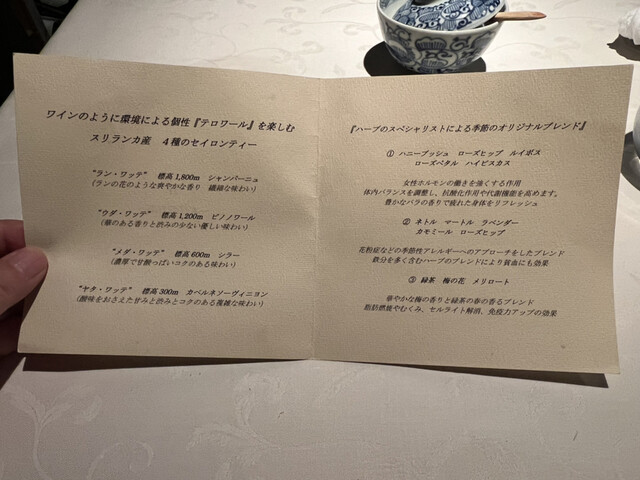 ワインのように環境による個性『テロワール』を楽しむ
スリランカ産　4種のセイロンティー
"ラン・ワッテ"　標高1,800m　シャンパーニュ
(ランの花のような爽やかな香り　繊細な味わい)
"ウダ・ワッテ"　標高1,200m　ピノノワール
(華のある香りと渋みの少ない優しい味わい)
"メダ・ワッテ"　標高600m　シラー
(濃厚で甘酸っぱいコクのある味わい)
"ヤタ・ワッテ"　標高300m　カベルネソーヴィニヨン
(酸味をおさえた甘みと渋みとコクのある複雑な味わい)
『ハーブのスペシャリストによる季節のオリジナルブレンド』
① ハニーブッシュ　ローズヒップ　ルイボス
ローズペタル　ハイビスカス
女性ホルモンの働きを強くする作用
体内バランスを調整し、抗酸化作用や代謝機能を高めます。
豊かなバラの香りで疲れた身体をリフレッシュ
② ネトル　マートル　ラベンダー
カモミール　ローズヒップ
花粉症などの季節性アレルギーへのアプローチをしたブレンド
鉄分を多く含むハーブのブレンドにより貧血にも効果
③ 緑茶　梅の花　メリロート
華やかな梅の香りと緑茶の春の香るブレンド
脂肪燃焼やむくみ、セルライト解消、免疫力アップの効果